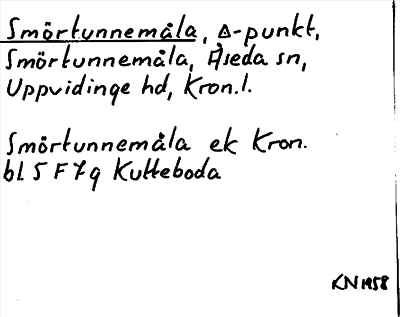 Smörtunnemåla, Δ-punkt,
Smörtunnemåla, Åseda sn,
Uppvidinge hd, Kron.l.
Smörtunnemåla ek Kron.
bl 5 F 7g Kutteboda
KN 1958